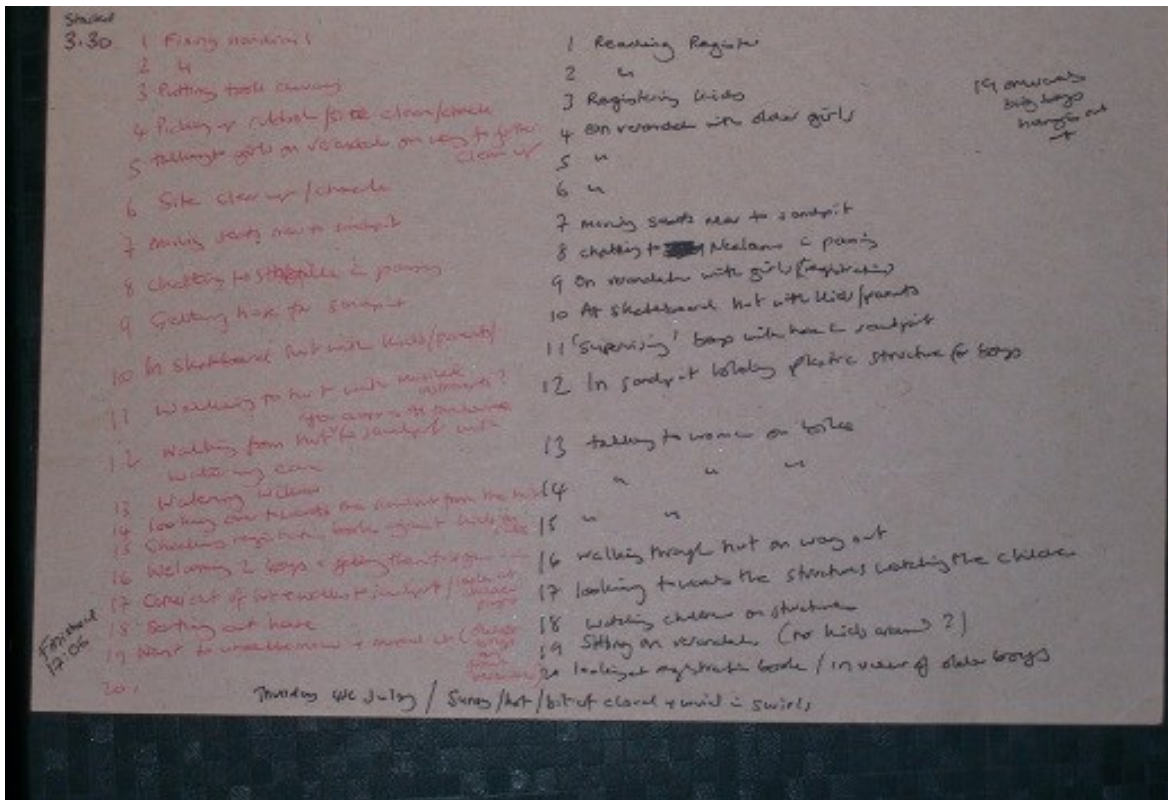 Started
3.30
1 Fixing handrails
2 "
3 Putting tools away
4 Picking up rubbish/site clean/check
5 talking to girls on verandah on way to further
clean up
6 Site clear up/check
7 moving seats near to sandpit
8 chatting to in passing
9 Getting hose for sandpit
10 In skateboard hut with kids/parents
11 Walking to hut with
12 Walking from hut to sandpit with
watering can
13 Watering
14 looking over towards the from the hut
15 Checking registration book against kids
16 Welcoming 2 boys + getting them to sign
17 Comes out of hut + walks to sandpit/
18 Sorting out hose
19 Went to
20.
Finished
17.05
1 Reading Register
2 "
3 Registering kids
4 On verandah with older girls
5 "
6 "
7 moving seats near to sandpit
8 chatting to in passing
9 On verandah with girls (registration)
10 At skateboard hut with kids/parents
11 'Supervising' boys with hose in sandpit
12 In sandpit holding plastic structure for boys
13 talking to women on bikes
14 " " "
15 " "
16 walking through hut on way out
17 looking towards the structures watching the children
18 watching children on structures
19 Sitting on verandah (no kids around?)
20 looking at registration book / in view of older boys
19 onwards
big boys
hanging out
Thursday 4th July / Sunny/hot/bit of cloud + wind in swirls